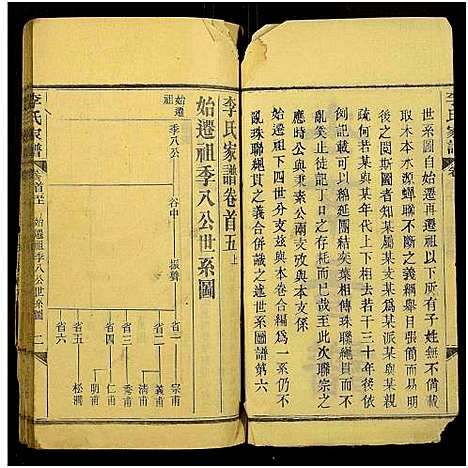 李氏家譜
世系圖自始遷再遷祖以下所有子姓世無不備載
取木本水源蟬聯不斷之義綱舉目張簡而易明
之閱斯圖者知某屬某支某為某派某與某親某
疏何若某與某年代上下相去若干三十年後就
例而記載可以綿延團結奕葉相傳珠聯繩目而不
亂矣止徒記丁口之存耗而已哉因此次聯宗之
應時公與秉素公兩支攺與本支
始遷祖下四世分支茲與本卷合編為一系仍不
亂珠聯繩貫之義合併識之述世系圖譜第六
李氏家譜卷首五上
始遷祖季八公世系圖
始遷祖
季八公
谷中
振聲
省一
宗甫
省二
義甫
清甫
省三
秀甫
省四
仁甫
明甫
省五
松澗
省六
李氏家譜
卷首五
始遷祖季八公世系圖
一